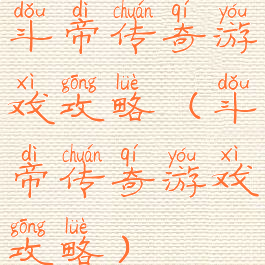 dǒu dì chuán qí yóu
斗帝传奇游
xì gōng lüè dǒu
戏攻略（斗
dì chuán qí yóu xì
帝传奇游戏
gōng lüè
攻略）